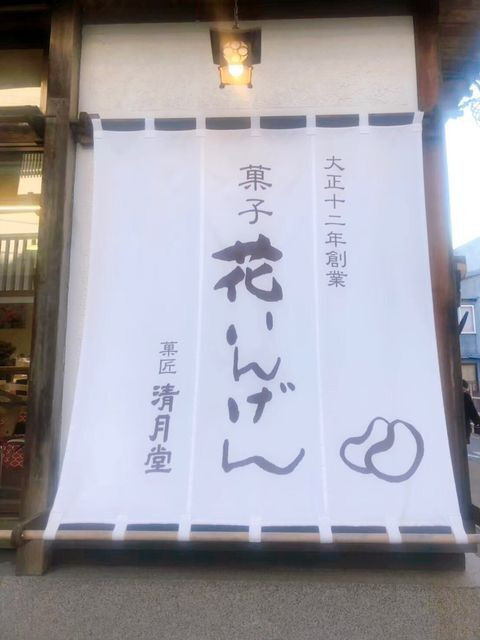 大正十二年創業
菓子
花いんげん
菓匠
清月堂